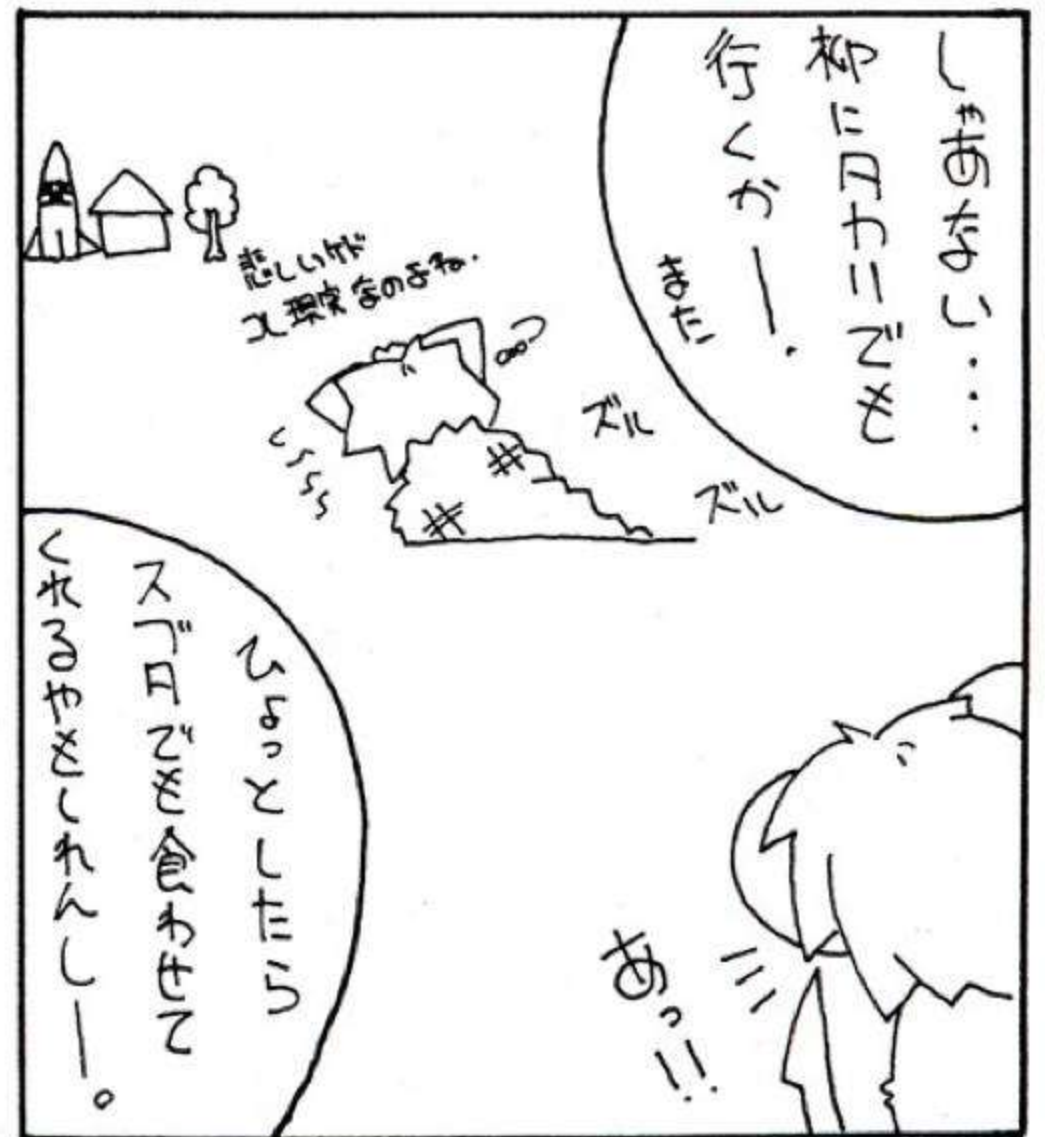 しゃあない・・・
柳にタカリでも
行くかー.
また
悲しいケド
コレ現実なのよね.
ズル
ズル
あっ!!
ひょっとしたら
スブタでも食わせて
くれるやもしれんしー。